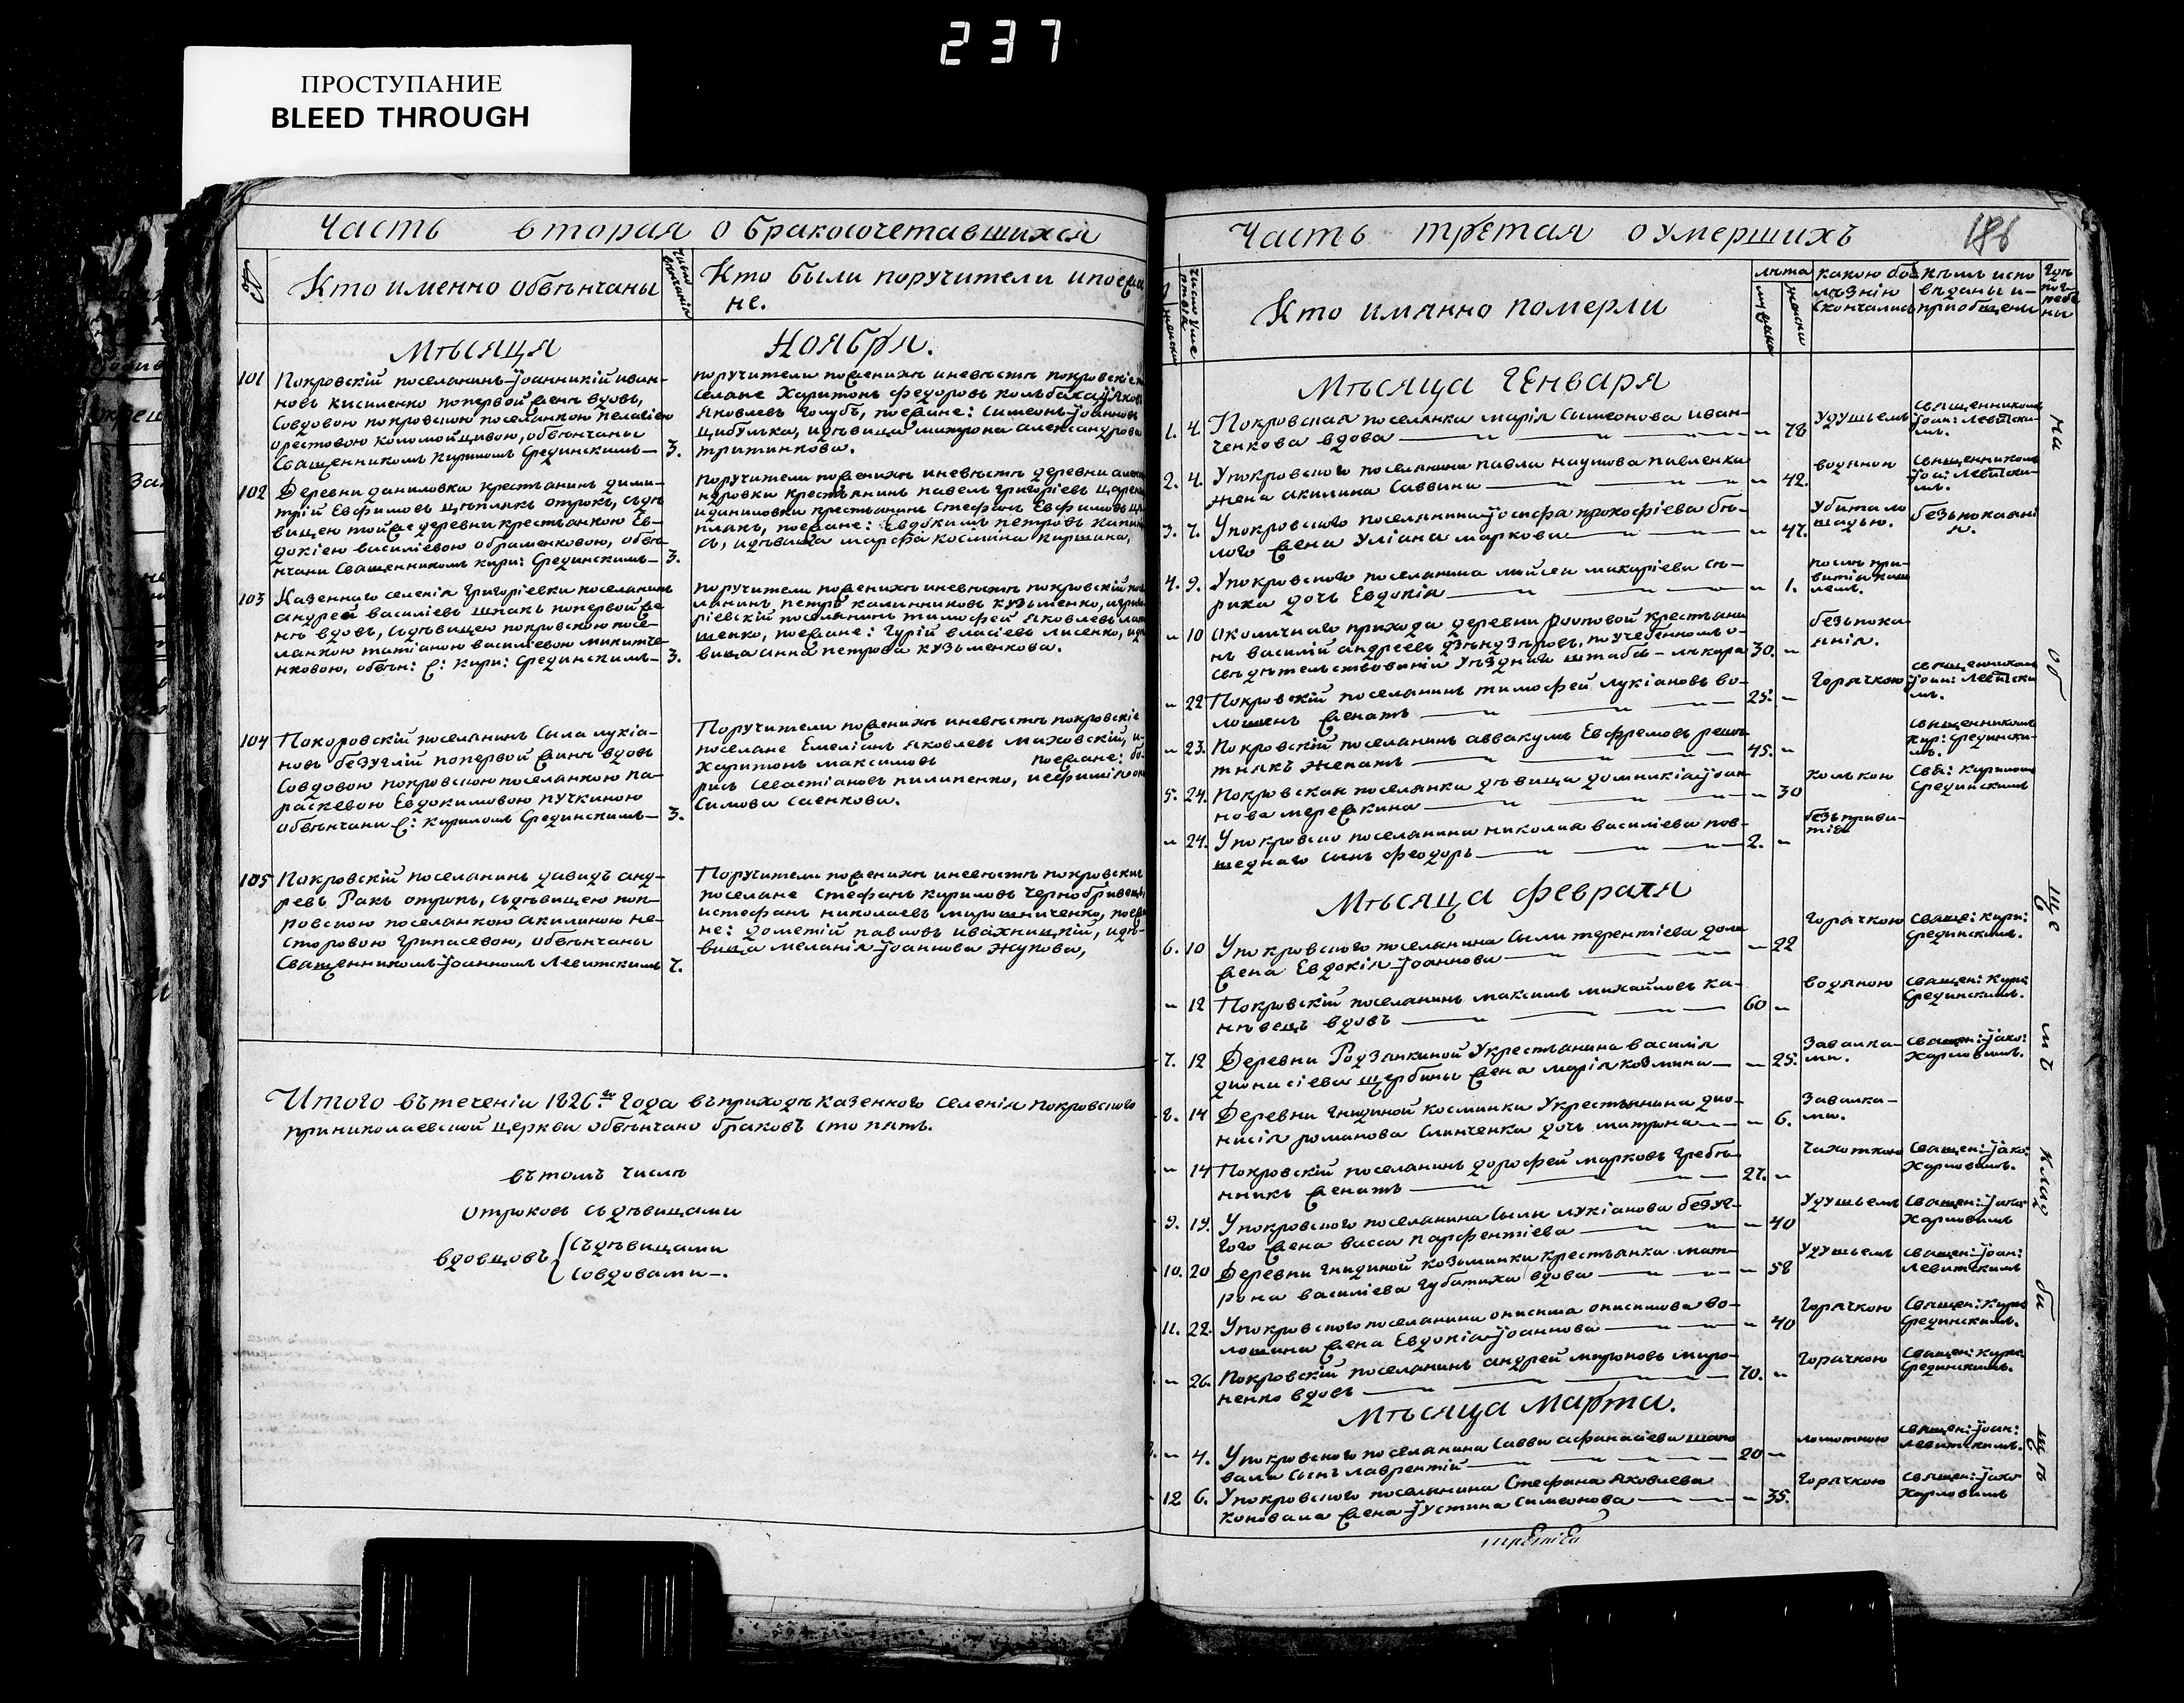 237
ПРОСТУПАНИЕ
BLEED THROUGH
Часть вторая о бракосочетавшихся
№
Кто именно обвѣнчаны
число венчанія
Кто были поручители и поезжа
не.
Мѣсяца Ноября.
101
Покровскій поселанинъ Іоанникій иван-
новъ кисиленко по первой женѣ вдовъ,
Совдовою покровскою поселанкою пелагіею
орестовою коломойцивою, обвѣнчаны
Священникомъ Кириломъ Срединскимъ— 3.
поручители по женихѣ и невѣстѣ покровскіе по
селане Харитонъ федоровъ колъбаха, Іяковъ
Яковлевъ Голубъ, поезжане: Симеонъ Іоанновъ
Цибулька, и дѣвица митрона александрова
тритинкова.
102
Деревни даниловки крестьанинъ дими-
трій Евфимовъ цѣплякъ отрокъ, съ дѣ
вицею той же деревни крестьанкою Ев-
докіею василіевою обраменковою, обвѣ
нчани Священникомъ кири: Срединскимъ— 3.
поручители по женихѣ и невѣстѣ деревни алек
ндровки крестьянинъ павелъ григоріевъ Царен
и даниловки крестьянинъ Стефанъ Евфимовъ цѣ
плакъ, поезжане: Евдокимъ петровъ капин
съ, и дѣвица марфа космина киршина,
103
Казеннаго селенія Григоріевки поселанинъ
андрей василіевъ шпакъ по первой же
нѣ вдовъ, съ дѣвицею покровскою посе-
ланкою татіаною василіевою микитче
нковою, обвѣн: С: Кири: Срединскимъ— 3.
поручители по женихѣ и невѣстѣ покровскій по
ланинъ петръ калинниковъ кузьменко, и григо
ріевскій поселанинъ тимофей Яковлевъ
шенко, поезжане: Гурій власіевъ лисенко, и дѣ
вица анна петрова кузьменкова.
104
Покоровскій поселанинъ Сила лукіа-
новъ безуглій по первой жинѣ вдовъ
Совдовою покровскою поселанкою па-
раскевою Евдокимовою пучкиною
обвѣнчани С: Кириломъ Срединскимъ— 3.
Поручители по женихѣ и невѣстѣ покровскіе
поселане Емеліанъ Яковлевъ Маховскій, и
Харитонъ максимовъ поезжане: бо-
рисъ Севастіановъ пилипенко, и ефимія он
Симова Саенкова.
105
Покровскій поселанинъ давидъ анд-
ревъ Ракъ отрокъ, съ дѣвицею пок-
ровскою поселанкою акилиною не-
сторовою Грипасевою, обвѣнчаны
Священникомъ Іоанномъ Левитскимъ 7.
Поручители по женихѣ и невѣстѣ покровскии
поселане Стефанъ кириловъ Чернобривецъ,
и стефанъ николаевъ мирошниченко, поезжа
не: дометій павловъ ивахницкій, и дѣ-
вица меланія Іоаннова Жукова,
Итого въ теченіи 1826го Года въ приходѣ казенного Селенія Покровского
при николаевской церкви обвѣнчано браковъ сто пять.
въ томъ числѣ
отроковъ съ дѣвицами
вдовцовъ { Съ дѣвицами
Совдовами—.
Часть третая о умершихъ
186
число умертвія
женски
Кто имянно померли
лѣта
мужска
женски
какою бо-
лѣзнію
скончались
Кѣмъ испо
вѣданы и-
приобщени
Гдѣ
погребе
ни
Мѣсяца Генваря
1. 4. Покровская поселянка марія Симеонова иван-
ченкова вдова — 78 Удушьемъ Священникомъ
Іоан: Левитски-
мъ.
2. 4. У покровского поселянина павла наумова павленка
жена акилина Саввина — 42. водяною Священникомъ
Іоан: Левитски-
мъ.
3. 7. У покровского поселянина Іосифа прокофіева бѣ-
лого жена Уліана маркова — 47. Убита ло
шадью. безъ покаяні
я.
4. 9. У покровского поселанина мойсея макаріева сѣ-
рика дочь Евдокія — 1. после при-
витія
10 Околичнаго прихода деревни крестьани
нъ василій андреевъ по учебенномъ о-
свѣдѣтельствованіи Уѣзднымъ штабъ-лѣкаря 30. безъ пока
янія.
22 Покровскій поселянинъ тимофей лукіановъ во-
лошенъ женатъ — 25. Горячкою священникомъ
Іоан: Левитски
мъ.
23. Покровскій поселанинъ аввакумъ Евфремовъ решот
тнякъ женатъ — 45. Священникомъ
Кир: Средински-
мъ.
5. 24. Покровская поселянка дѣвица домникія Іоан
нова мережкина — 30 колькою Свя: Кириломъ
Срединскимъ
24. У покровско поселанина николая василіева пов-
шеднаго сынъ феодоръ — 2. безъ приви-
тія
Мѣсяца февраля
6. 10 У покровского поселанина Силы терентіева
жена Евдокія Іоаннова — 22 Горачкою Свяще: Кири:
Срединскимъ.
12 Покровскій поселанинъ максимъ михайловъ ка-
нѣвецъ вдовъ — 60 водяною Священ: Кири
Срединскимъ.
7. 12 Деревни Родзянкиной У крестьанина василія
діонисіева щербины жена марія козмина — 25. Завалка-
ми. Священ: Іако:
Харловимъ.
8. 14 Деревни Гнидиной Косминки У крестьянина дио-
нисія романова Слинченка дочь митрона — 6. Завалка-
ми.
14 Покровскій поселанинъ дорофей марковъ Гребе-
нникъ женатъ — 27. Чахоткою Священ: Іако
Харловимъ.
9. 19. У покровского поселанина Силы лукіанова безуг-
лого жена васса парфентіева — 40 Удушьемъ Священ: Іако
Харловимъ
10. 20 Деревни гнидиной козьминки крестьанка мат-
рона василіева Губатиха вдова — 58 Удушьемъ Священ: Іоан:
Левитскимъ
11. 22. У покровского поселанина онисима онисимова во-
лошина жена Евдокія Іоаннова — 40 Горячкою Священ: Кири
Срединскимъ.
26. Покровскій поселанинъ андрей мироновъ миро-
ненко вдовъ — 70. Горачкою Священ: Кири
Срединскимъ.
Мѣсяца Марта.
4. У покровского поселанина Савви афанасіева шапо
вала Сынъ лаврентій — 20 ломотною священ: Іоан:
Левитскимъ.
12 6. У покровского поселянина Стефана Яковлева
Коновала жена Іустина Симеонова — 35. Горячкою Священ: Іако
Харловимъ
на об ще мъ клад би щѣ